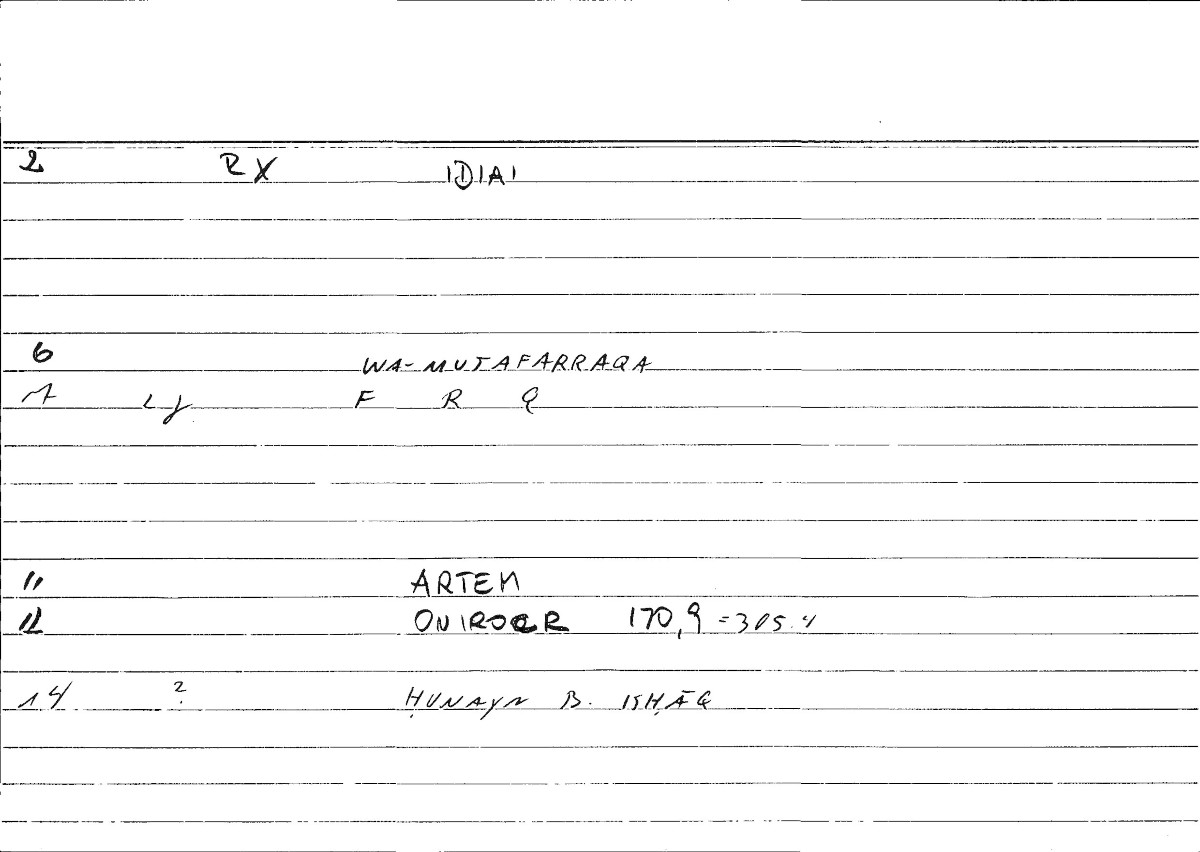 2 RX IDIAI
6 WA-MUTAFARRAQA
7 F R Q
11 ARTEM
12 ONIROCR 170,9 = 305.4
14 ? ḤUNAYN B. ISḤĀQ